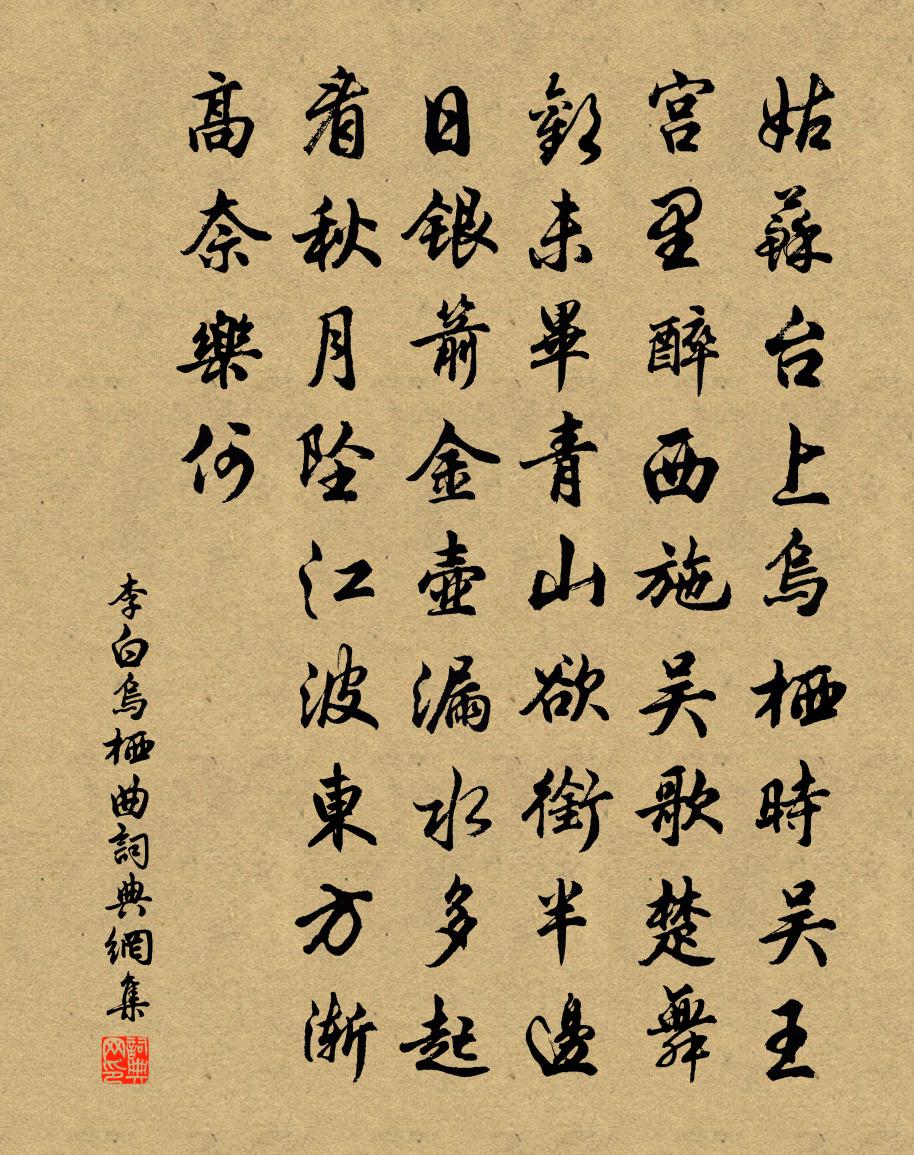 姑蘇台上烏栖時吴王
宫里醉西施吴歌楚舞
歡未畢青山欲銜半邊
日銀箭金壺漏水多起
看秋月坠江波東方漸
高奈樂何
李白烏栖曲詞典網集
詞典网印